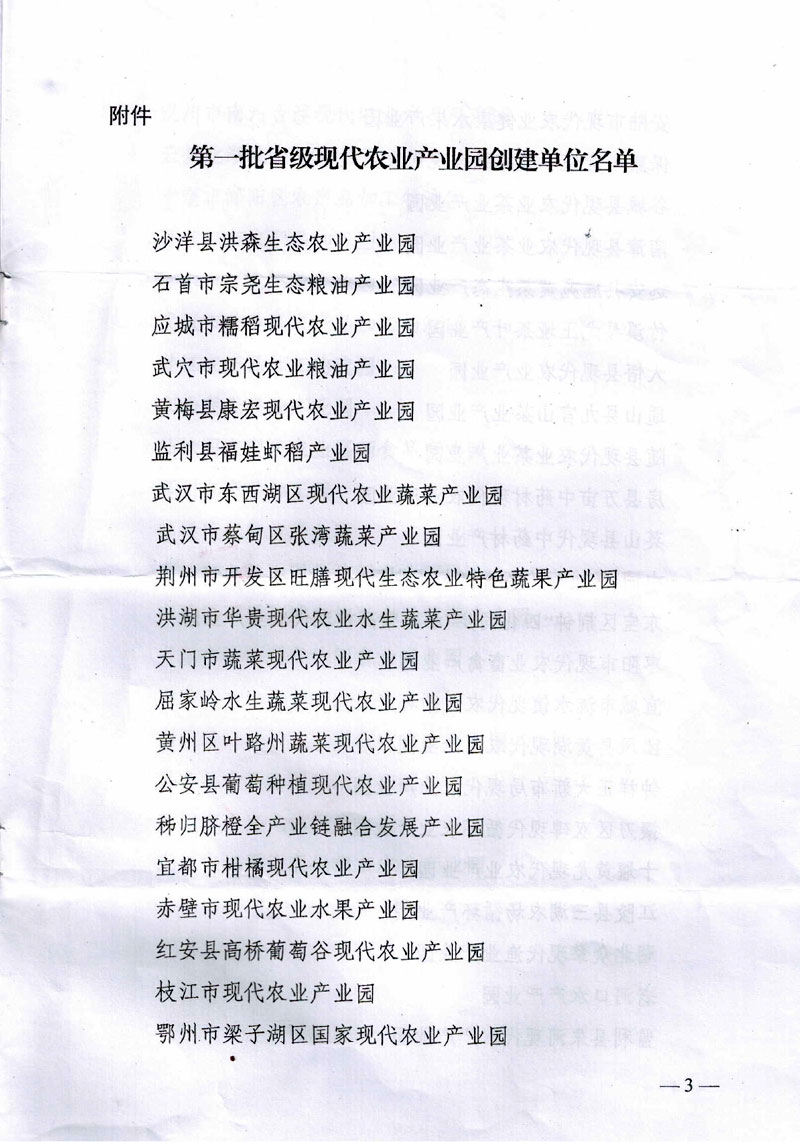 附件
第一批省级现代农业产业园创建单位名单
沙洋县洪森生态农业产业园
石首市宗尧生态粮油产业园
应城市糯稻现代农业产业园
武穴市现代农业粮油产业园
黄梅县康宏现代农业产业园
监利县福娃虾稻产业园
武汉市东西湖区现代农业蔬菜产业园
武汉市蔡甸区张湾蔬菜产业园
荆州市开发区旺膳现代生态农业特色蔬果产业园
洪湖市华贵现代农业水生蔬菜产业园
天门市蔬菜现代农业产业园
屈家岭水生蔬菜现代农业产业园
黄州区叶路州蔬菜现代农业产业园
公安县葡萄种植现代农业产业园
秭归脐橙全产业链融合发展产业园
宜都市柑橘现代农业产业园
赤壁市现代农业水果产业园
红安县高桥葡萄谷现代农业产业园
枝江市现代农业产业园
鄂州市梁子湖区国家现代农业产业园
—3—